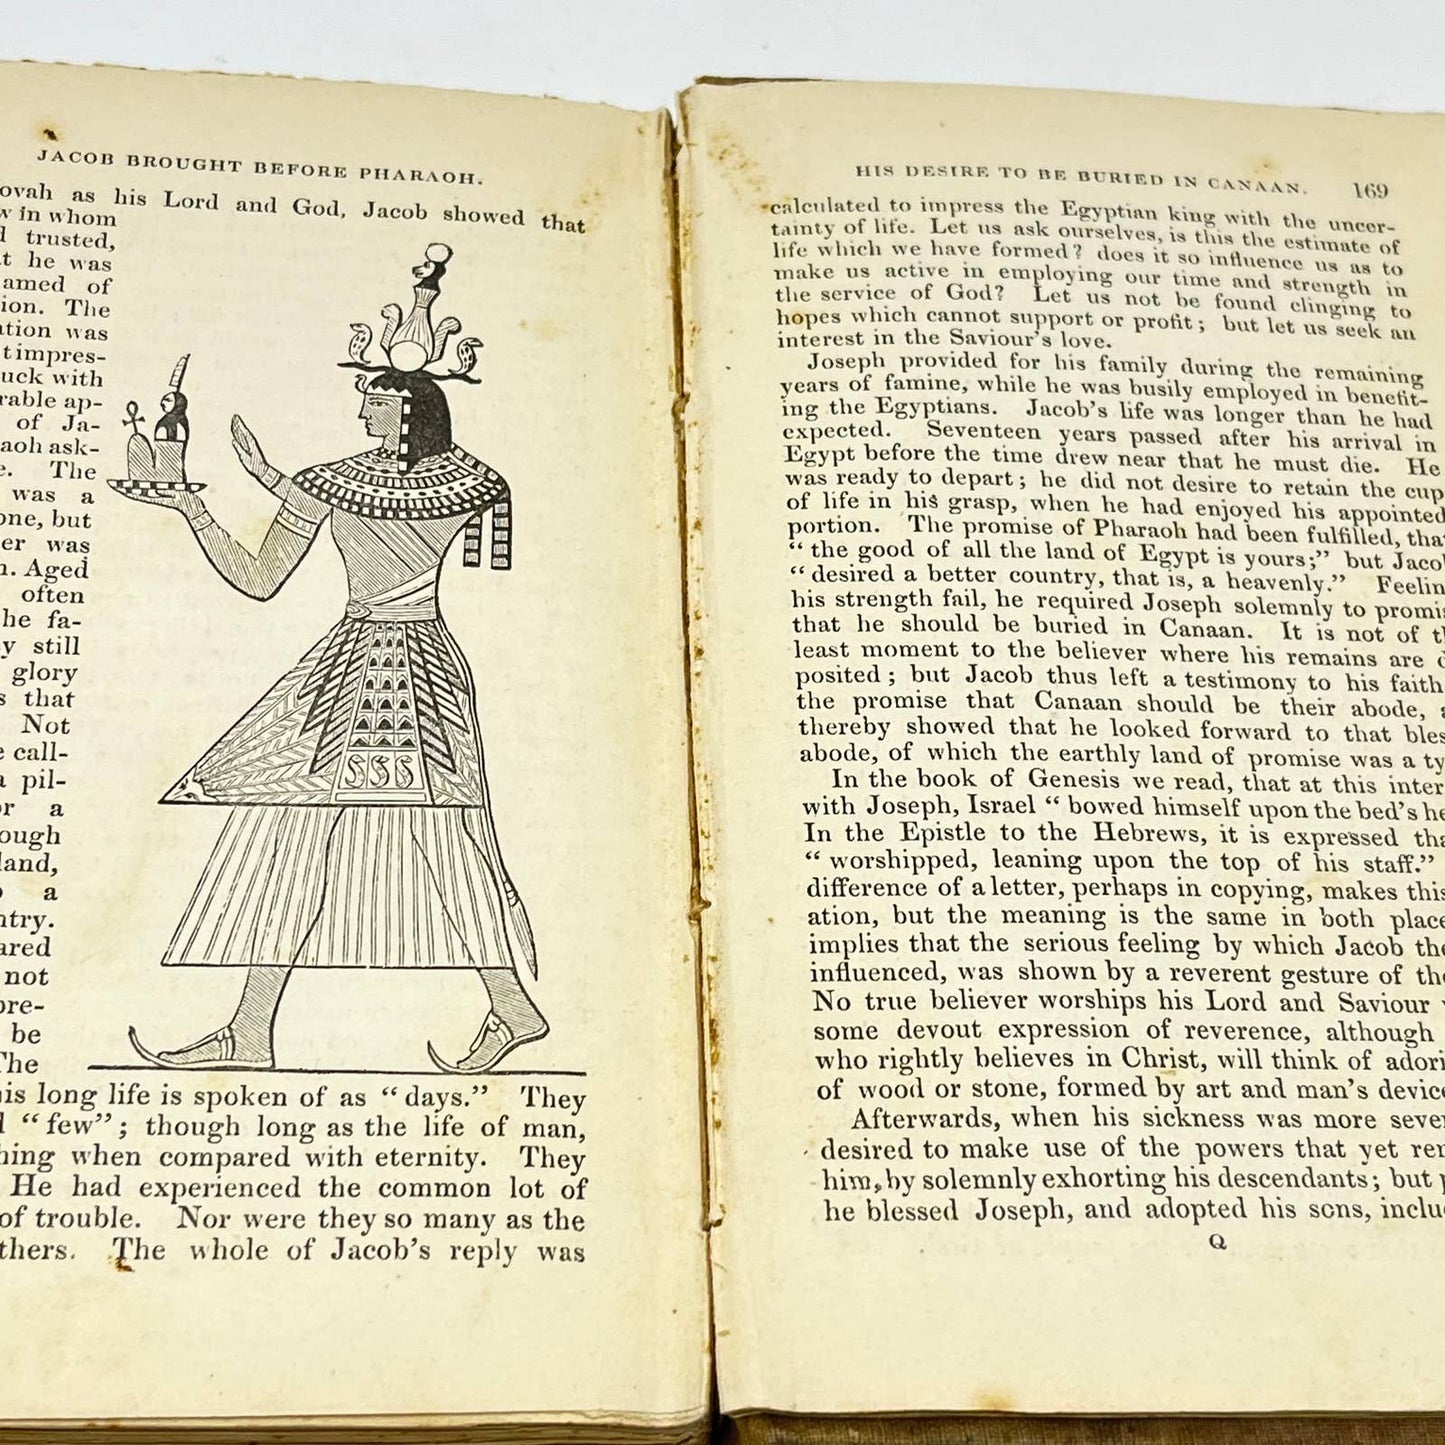 JACOB BROUGHT BEFORE PHARAOH.
ovah as his Lord and God, Jacob showed that
in whom
trusted,
he was
amed of
ion. The
ation was
t impres-
uck with
rable ap-
of Ja-
aoh ask-
The
was a
one, but
er was
Aged
often
he fa-
y still
glory
s that
Not
e call-
a pil-
or a
ough
land,
a
ntry.
ared
not
pre-
be
The
his long life is spoken of as “days.” They
“few”; though long as the life of man,
hing when compared with eternity. They
He had experienced the common lot of
of trouble. Nor were they so many as the
thers. The whole of Jacob's reply was
HIS DESIRE TO BE BURIED IN CANAAN. 169
calculated to impress the Egyptian king with the uncer-
tainty of life. Let us ask ourselves, is this the estimate of
life which we have formed? does it so influence us as to
make us active in employing our time and strength in
the service of God? Let us not be found clinging to
hopes which cannot support or profit; but let us seek an
interest in the Saviour's love.
Joseph provided for his family during the remaining
years of famine, while he was busily employed in benefit-
ing the Egyptians. Jacob's life was longer than he had
expected. Seventeen years passed after his arrival in
Egypt before the time drew near that he must die. He
was ready to depart; he did not desire to retain the cup
of life in his grasp, when he had enjoyed his appointed
portion. The promise of Pharaoh had been fulfilled, that
“the good of all the land of Egypt is yours;” but Jaco
“desired a better country, that is, a heavenly.” Feelin
his strength fail, he required Joseph solemnly to promis
that he should be buried in Canaan. It is not of th
least moment to the believer where his remains are d
posited; but Jacob thus left a testimony to his faith
the promise that Canaan should be their abode, a
thereby showed that he looked forward to that bles
abode, of which the earthly land of promise was a ty
In the book of Genesis we read, that at this inter
with Joseph, Israel “bowed himself upon the bed's he
In the Epistle to the Hebrews, it is expressed tha
“worshipped, leaning upon the top of his staff.”
difference of a letter, perhaps in copying, makes this
ation, but the meaning is the same in both place
implies that the serious feeling by which Jacob the
influenced, was shown by a reverent gesture of the
No true believer worships his Lord and Saviour
some devout expression of reverence, although
who rightly believes in Christ, will think of adori
of wood or stone, formed by art and man's device
Afterwards, when his sickness was more sever
desired to make use of the powers that yet rem
him, by solemnly exhorting his descendants; but
he blessed Joseph, and adopted his sons, inclu
Q